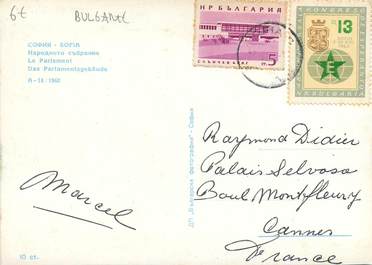 6€ BULGARIE
СОФИЯ - SOFIA
Народното събрание
Le Parlement
Das Parlamentsgebäude
А-18/1960
НР БЪЛГАРИЯ
5
13
Raymond Didier
Palais Selvosa
Boul Montfleury
Cannes
France
Marcel
ДП „Българска фотография" - София
10 ст.